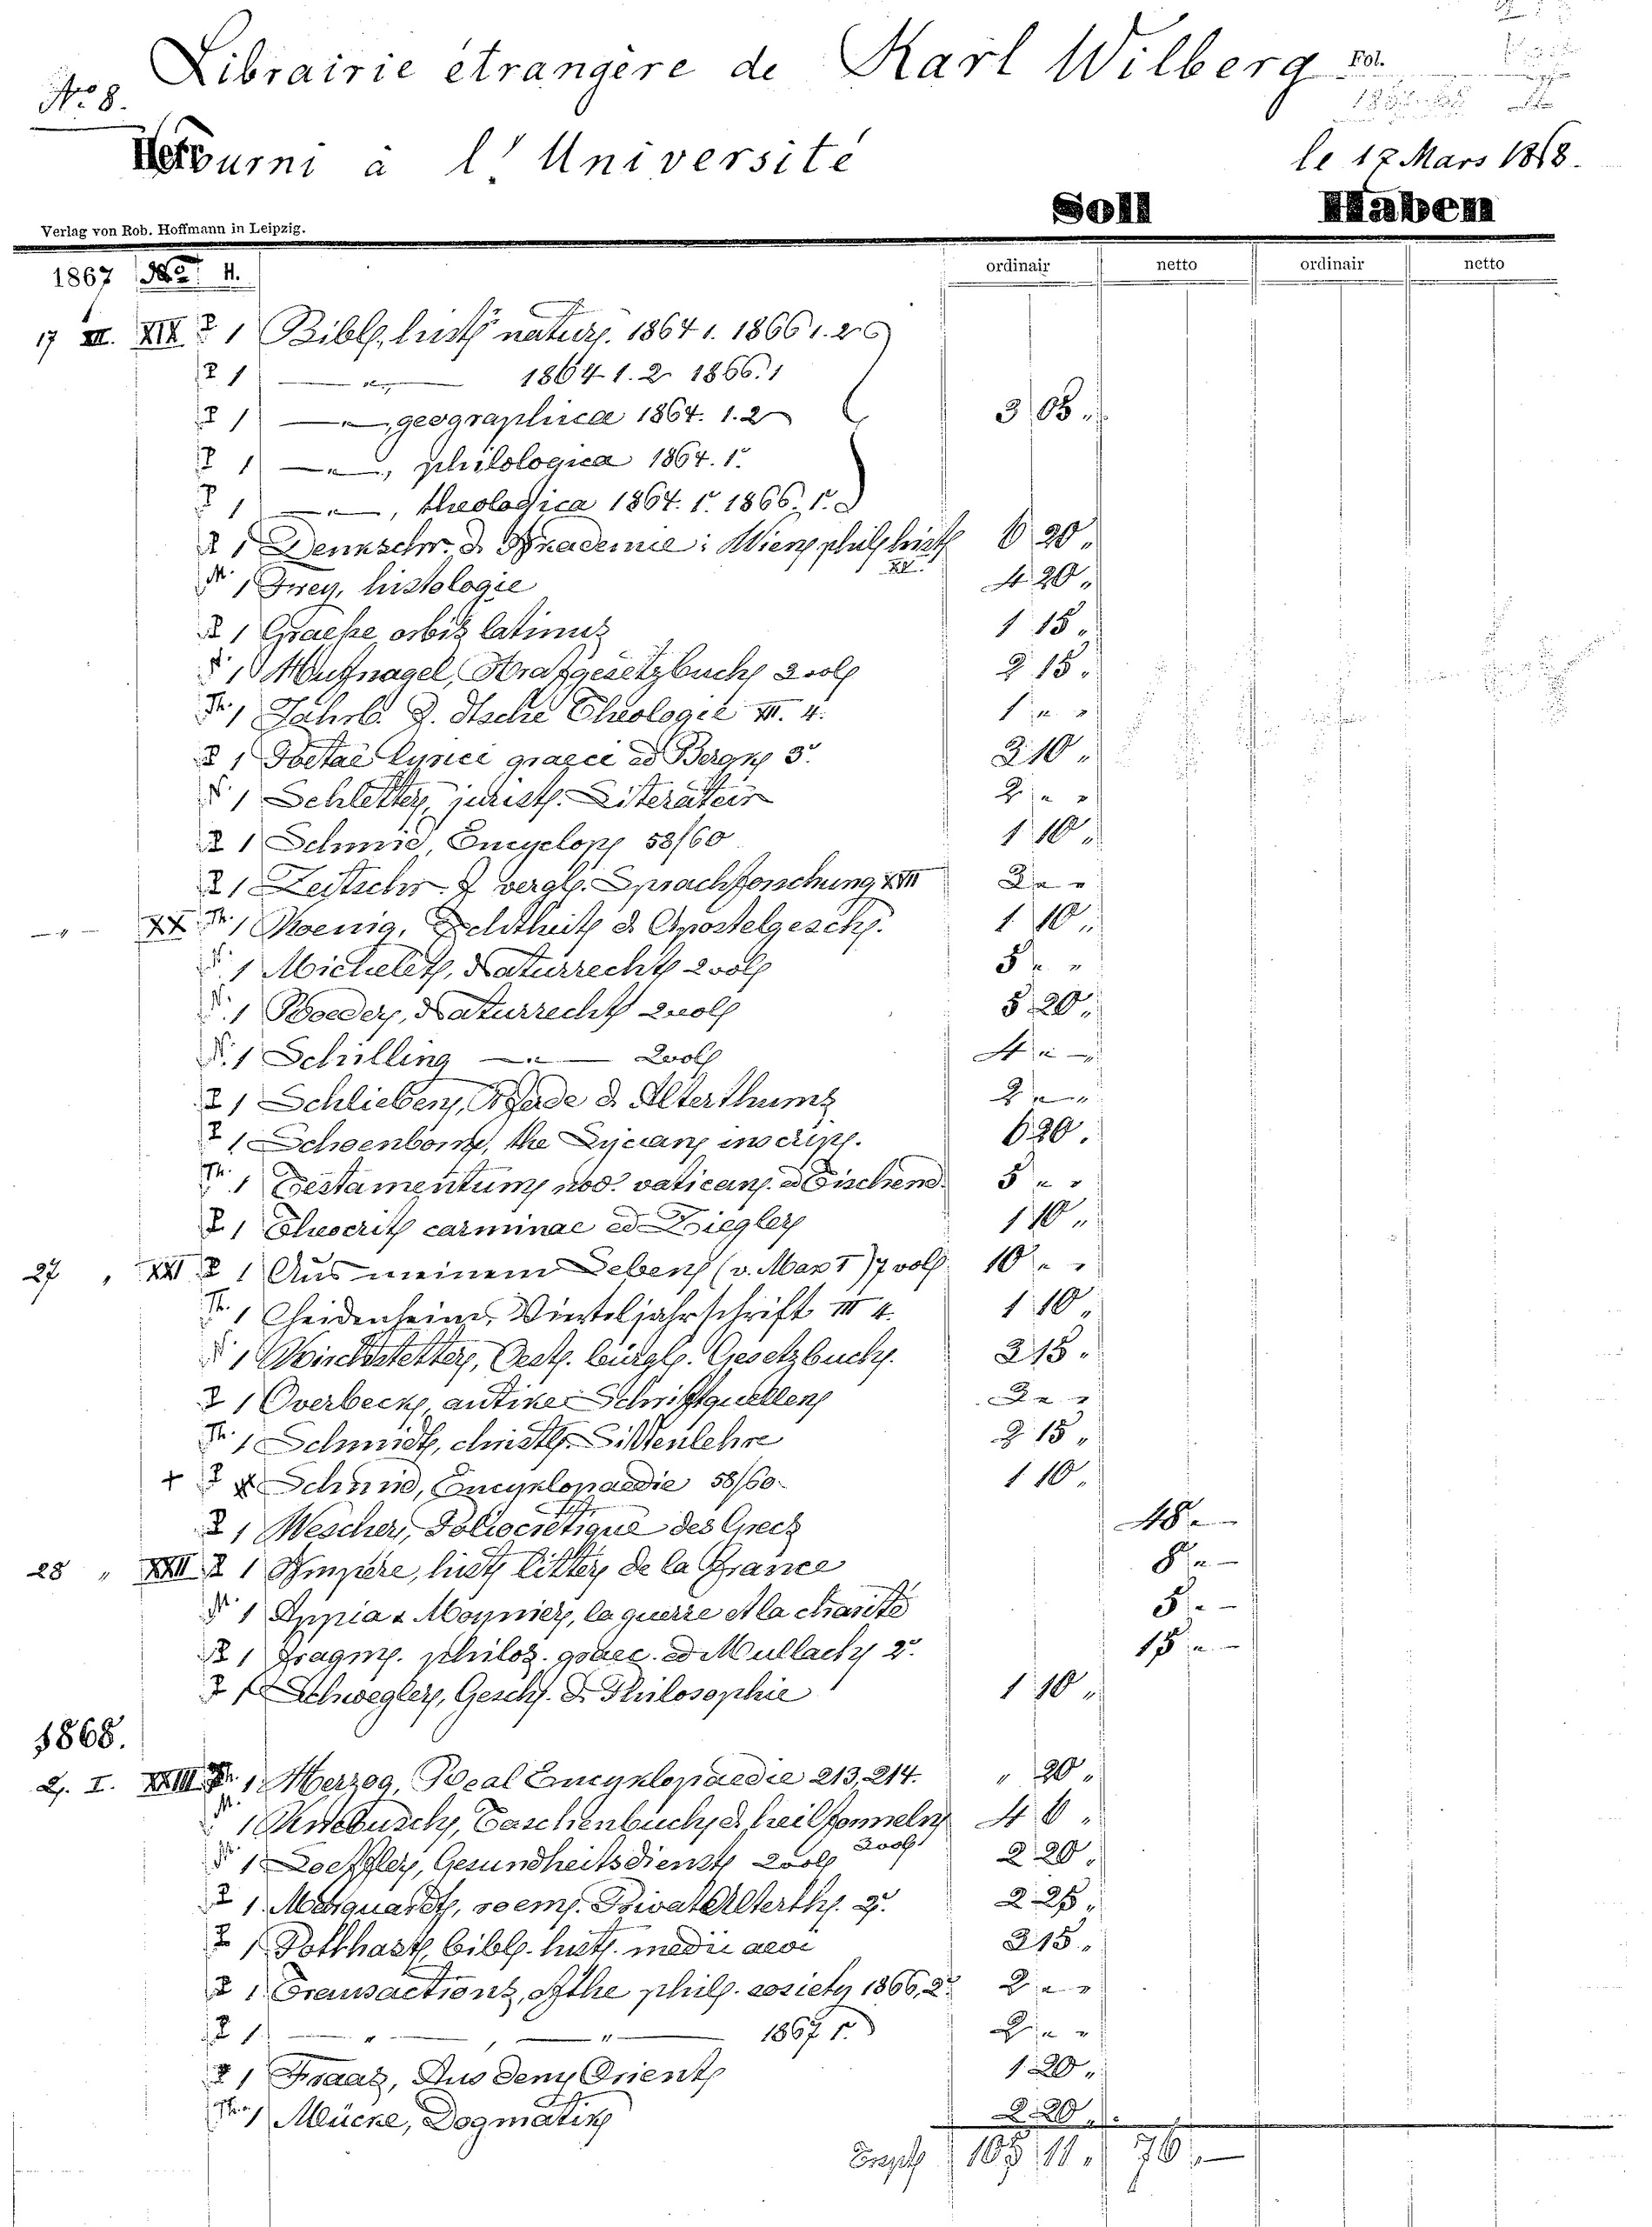 Librairie étrangère de Karl Wilberg Fol.
No 8.
fourni à l'Université
le 17 Mars 1868.
Soll Haben
Verlag von Rob. Hoffmann in Leipzig.
1867 No. H.
ordinair netto ordinair netto
17 XII. XIX P 1 Bibl. hist. natur. 1864 1. 1866 1. 2
P 1 —"— 1864 1. 2 1866. 1
P 1 —"—, geographica 1864. 1. 2 3 05 "
P 1 —"—, philologica 1864. 1.
P 1 —"—, theologica 1864. 1. 1866. 1.
P 1 Denkschr. d. Akademie: Wien phil hist XV. 6 20 "
M. 1 Frey, histologie 4 20 "
P 1 Graesse orbis latinus 1 15 "
N. 1 Hufnagel, Strafgesetzbuch 2 vol 2 15 "
Th. 1 Jahrb. d. dtsche Theologie XII. 4. 1 " "
P 1 Poetae lyrici graeci ed Bergk 3. 2 10 "
N. 1 Schletter, jurist. Literatur 2 " "
P 1 Schmid, Encyclop 58/60 1 10 "
P 1 Zeitschr. f vergl. Sprachforschung XVII 3 " "
—"— XX Th. 1 Koenig, Echtheit d. Apostelgesch. 1 10 "
N. 1 Michelet, Naturrecht 2 vol 5 " "
N. 1 Roeder, Naturrecht 2 vol 5 20 "
N. 1 Schilling —"— 2 vol 4 " "
P 1 Schlieben, Pferde d. Alterthums 2 " "
P 1 Schoenborn, the Lycian inscrip. 6 20 "
Th. 1 Testamentum nov. vatican. ed Tischend. 5 " "
P 1 Theocrit carminae ed Ziegler 1 10 "
27 " XXI P 1 Aus meinem Leben (v. Max I) 7 vol 10 " "
Th. 1 Heidenheim, Vierteljahrschrift III 4. 1 10 "
N 1 Kirchstetter, Oest. bürgl. Gesetzbuch. 2 15 "
P 1 Overbeck, antike Schriftquellen 3 " "
Th. 1 Schmidt, christl. Sittenlehre 2 15 "
+ P 1 Schmid, Encyklopaedie 58/60. 1 10 "
P 1 Wescher, Poliocrétique des Grecs 48 " —
28 " XXII P 1 Ampère, hist littér de la France 8 " —
M. 1 Appia & Moynier, la guerre et la charité 5 " —
P 1 Fragm. philos. graec. ed Mullach 2. 15 " —
P 1 Schwegler, Gesch. d. Philosophie 1 10 "
1868.
2. I. XXIII Th. 1 Herzog, Real Encyklopaedie 213, 214. " 20 "
M. 1 Knebusch, Taschenbuch d. heilformeln 2 vol 4 6 "
M 1 Loeffler, Gesundheitsdienst 2 vol 2 20 "
P 1. Marquardt, roem. Privat Alterth. 2. 2 25 "
P 1 Potthast, bibl. hist. medii aevi 2 15 "
P 1 Transactions, of the phil. society 1866, 2. 2 " "
P 1 —"—, —"— 1867 1. 2 " "
P 1 Fraas, Aus dem Orient 1 20 "
Th. 1 Mücke, Dogmatik 2 20 "
109 11 " 76 " —